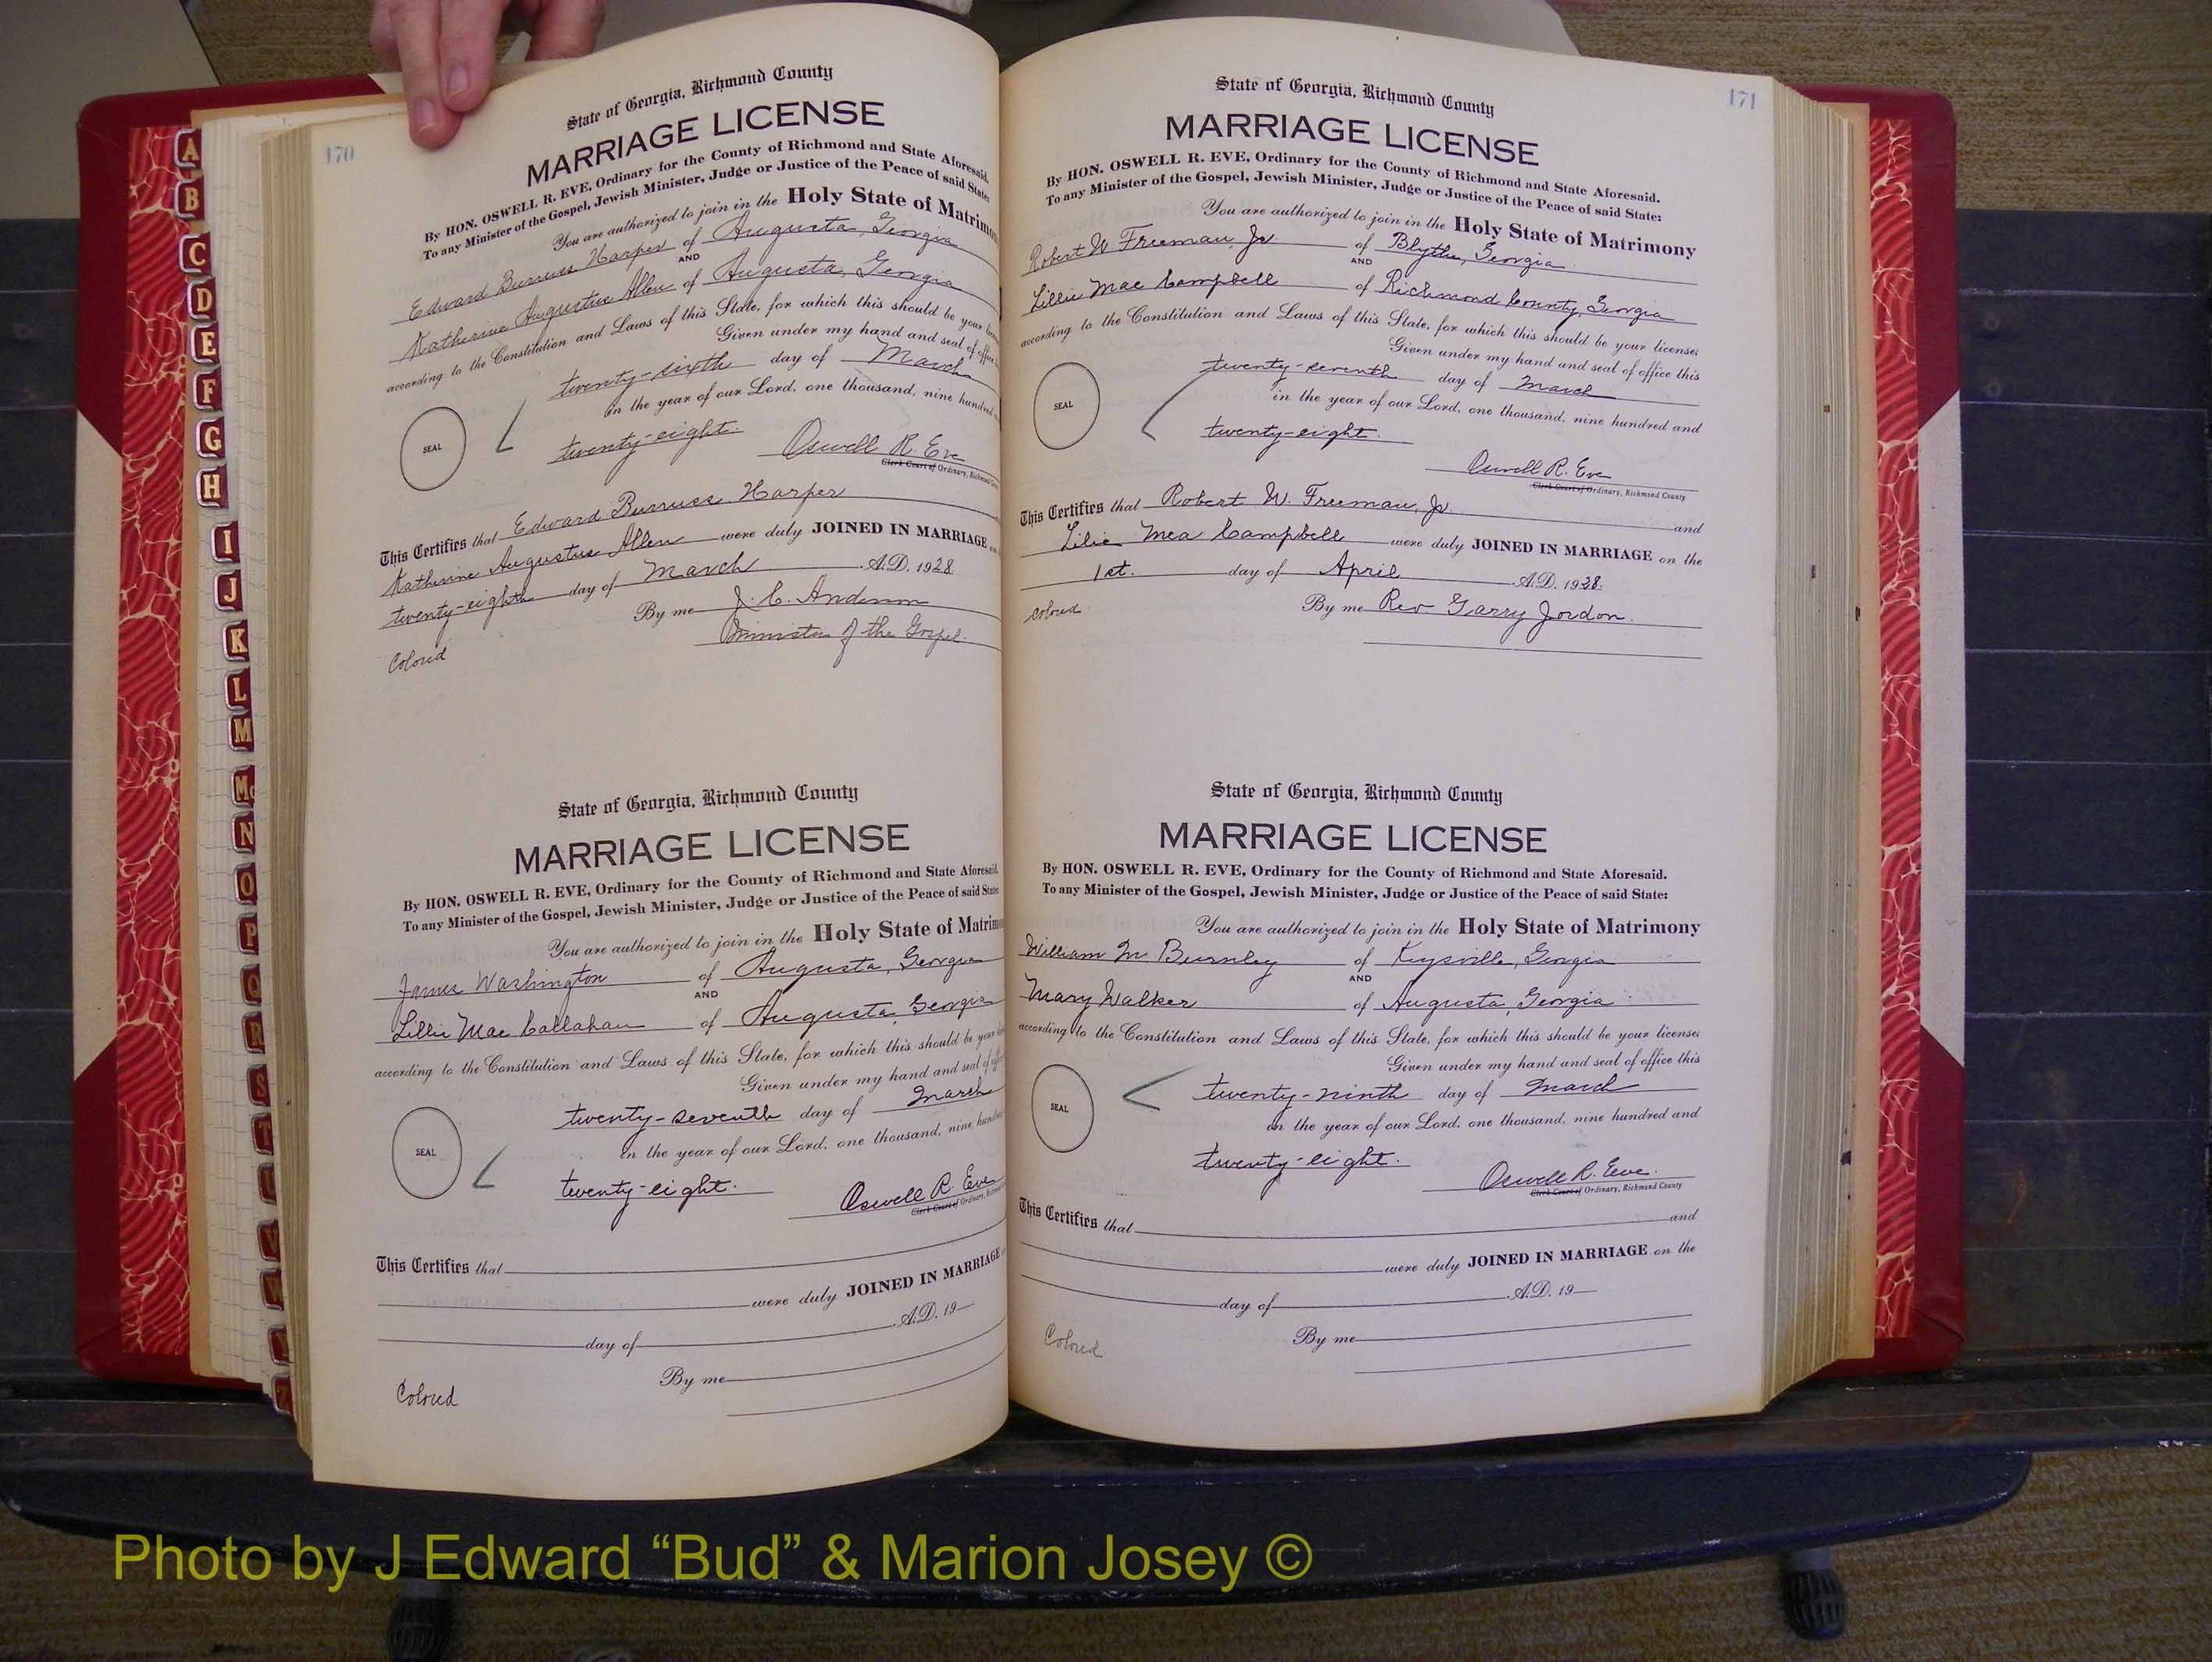 A
B
C
D
E
F
G
H
I
J
K
L
M
Mc
N
O
P
Q
R
S
T
U
V
W
170
State of Georgia, Richmond County
MARRIAGE LICENSE
By HON. OSWELL R. EVE, Ordinary for the County of Richmond and State Aforesaid.
To any Minister of the Gospel, Jewish Minister, Judge or Justice of the Peace of said State:
You are authorized to join in the Holy State of Matrimo
Edward Burruss Harper of Augusta, Georgia
AND
Katherine Augustus Allen of Augusta, Georgia
according to the Constitution and Laws of this State, for which this should be your
Given under my hand and seal of office
twenty-sixth day of March
in the year of our Lord, one thousand, nine hundred
SEAL
twenty-eight.
Oswell R. Eve
Clerk Court of Ordinary, Richmond
This Certifies that Edward Burruss Harper
Katherine Augustus Allen were duly JOINED IN MARRIAGE
twenty-eighth day of March A.D. 1928
By me J. C. Anderson
Minister of the Gospel.
Colored
State of Georgia, Richmond County
MARRIAGE LICENSE
By HON. OSWELL R. EVE, Ordinary for the County of Richmond and State Aforesaid.
To any Minister of the Gospel, Jewish Minister, Judge or Justice of the Peace of said State:
You are authorized to join in the Holy State of Matrim
James Washington of Augusta, Georgia
AND
Lillie Mae Callahan of Augusta, Georgia
according to the Constitution and Laws of this State, for which this should be your
Given under my hand and seal of
twenty-seventh day of March
in the year of our Lord, one thousand, nine
SEAL
twenty-eight.
Oswell R. Eve
Clerk Court of Ordinary,
This Certifies that
were duly JOINED IN MARRIAGE
day of A.D. 19
By me
Colored
171
State of Georgia, Richmond County
MARRIAGE LICENSE
By HON. OSWELL R. EVE, Ordinary for the County of Richmond and State Aforesaid.
To any Minister of the Gospel, Jewish Minister, Judge or Justice of the Peace of said State:
You are authorized to join in the Holy State of Matrimony
Robert W Freeman, Jr. of Blythe, Georgia
AND
Lillie Mae Campbell of Richmond County, Georgia
according to the Constitution and Laws of this State, for which this should be your license;
Given under my hand and seal of office this
twenty-seventh day of March
in the year of our Lord, one thousand, nine hundred and
SEAL
twenty-eight.
Oswell R. Eve
Clerk Court of Ordinary, Richmond County
This Certifies that Robert W. Freeman, Jr. and
Lilie Mea Campbell were duly JOINED IN MARRIAGE on the
1st. day of April A.D. 1928.
By me Rev Garry Jordon.
Colored
State of Georgia, Richmond County
MARRIAGE LICENSE
By HON. OSWELL R. EVE, Ordinary for the County of Richmond and State Aforesaid.
To any Minister of the Gospel, Jewish Minister, Judge or Justice of the Peace of said State:
You are authorized to join in the Holy State of Matrimony
William M. Burnley of Keysville, Georgia
AND
Mary Walker of Augusta, Georgia
according to the Constitution and Laws of this State, for which this should be your license;
Given under my hand and seal of office this
twenty-ninth day of March
in the year of our Lord, one thousand, nine hundred and
SEAL
twenty-eight.
Oswell R. Eve.
Clerk Court of Ordinary, Richmond County
This Certifies that and
were duly JOINED IN MARRIAGE on the
day of A.D. 19
By me
Colored
Photo by J Edward “Bud” & Marion Josey ©